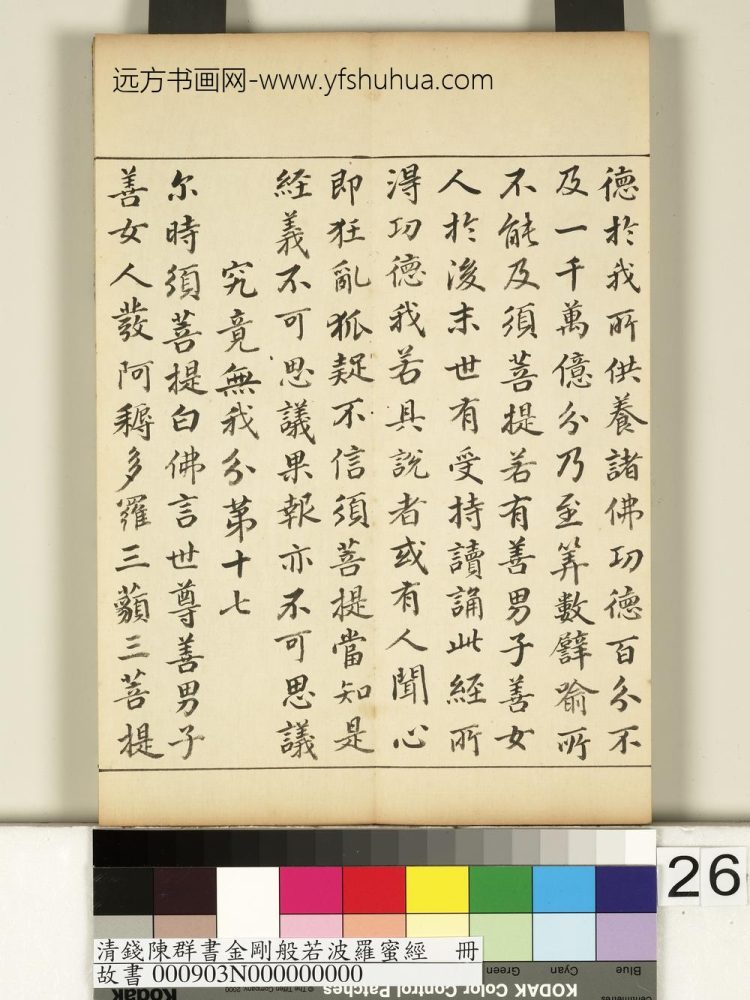 远方书画网-www.yfshuhua.com
德於我所供養諸佛功德百分不
及一千萬億分乃至筭數譬喻所
不能及須菩提若有善男子善女
人於後末世有受持讀誦此經所
得功德我若具說者或有人聞心
即狂亂狐疑不信須菩提當知是
經義不可思議果報亦不可思議
究竟無我分第十七
尔時須菩提白佛言世尊善男子
善女人發阿耨多羅三藐三菩提
26
清錢陳群書金剛般若波羅蜜經 冊
故書 000903N000000000
Blue
Cyan
Green
© The Tiffen Company, 2000
KODAK Color Control Patches
Centimetres
Kodak